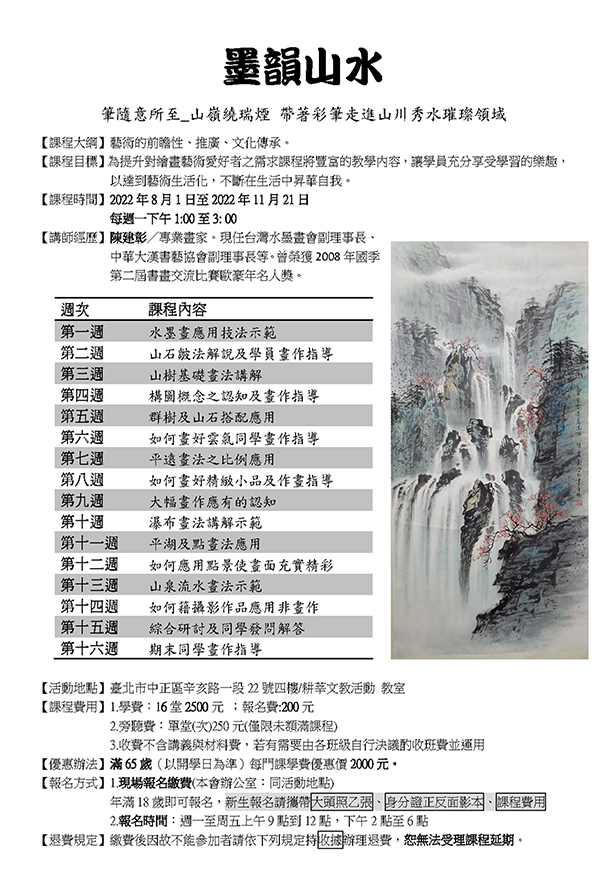 墨韻山水
筆隨意所至_山嶺繞瑞煙 帶著彩筆走進山川秀水璀璨領域
【課程大綱】藝術的前瞻性、推廣、文化傳承。
【課程目標】為提升對繪畫藝術愛好者之需求課程將豐富的教學內容，讓學員充分享受學習的樂趣，
以達到藝術生活化，不斷在生活中昇華自我。
【課程時間】2022 年 8 月 1 日至 2022 年 11 月 21 日
每週一下午 1:00 至 3: 00
【講師經歷】陳建彰／專業畫家。現任台灣水墨畫會副理事長、
中華大漢書藝協會副理事長等。曾榮獲 2008 年國季
第二屆書畫交流比賽歐豪年名人獎。
週次 課程內容
第一週 水墨畫應用技法示範
第二週 山石皴法解說及學員畫作指導
第三週 山樹基礎畫法講解
第四週 構圖概念之認知及畫作指導
第五週 群樹及山石搭配應用
第六週 如何畫好雲氣同學畫作指導
第七週 平遠畫法之比例應用
第八週 如何畫好精緻小品及作畫指導
第九週 大幅畫作應有的認知
第十週 瀑布畫法講解示範
第十一週 平湖及點畫法應用
第十二週 如何應用點景使畫面充實精彩
第十三週 山泉流水畫法示範
第十四週 如何籍攝影作品應用非畫作
第十五週 綜合研討及同學發問解答
第十六週 期末同學畫作指導
【活動地點】臺北市中正區辛亥路一段 22 號四樓/耕莘文教活動 教室
【課程費用】1.學費：16 堂 2500 元 ；報名費:200 元
2.旁聽費：單堂(次)250 元(僅限未額滿課程)
3.收費不含講義與材料費，若有需要由各班級自行決議酌收班費並運用
【優惠辦法】滿 65 歲（以開學日為準）每門課學費優惠價 2000 元。
【報名方式】1.現場報名繳費(本會辦公室：同活動地點)
年滿 18 歲即可報名，新生報名請攜帶大頭照乙張、身分證正反面影本、課程費用
2.報名時間：週一至周五上午 9 點到 12 點，下午 2 點至 6 點
【退費規定】繳費後因故不能參加者請依下列規定持收據辦理退費，恕無法受理課程延期。